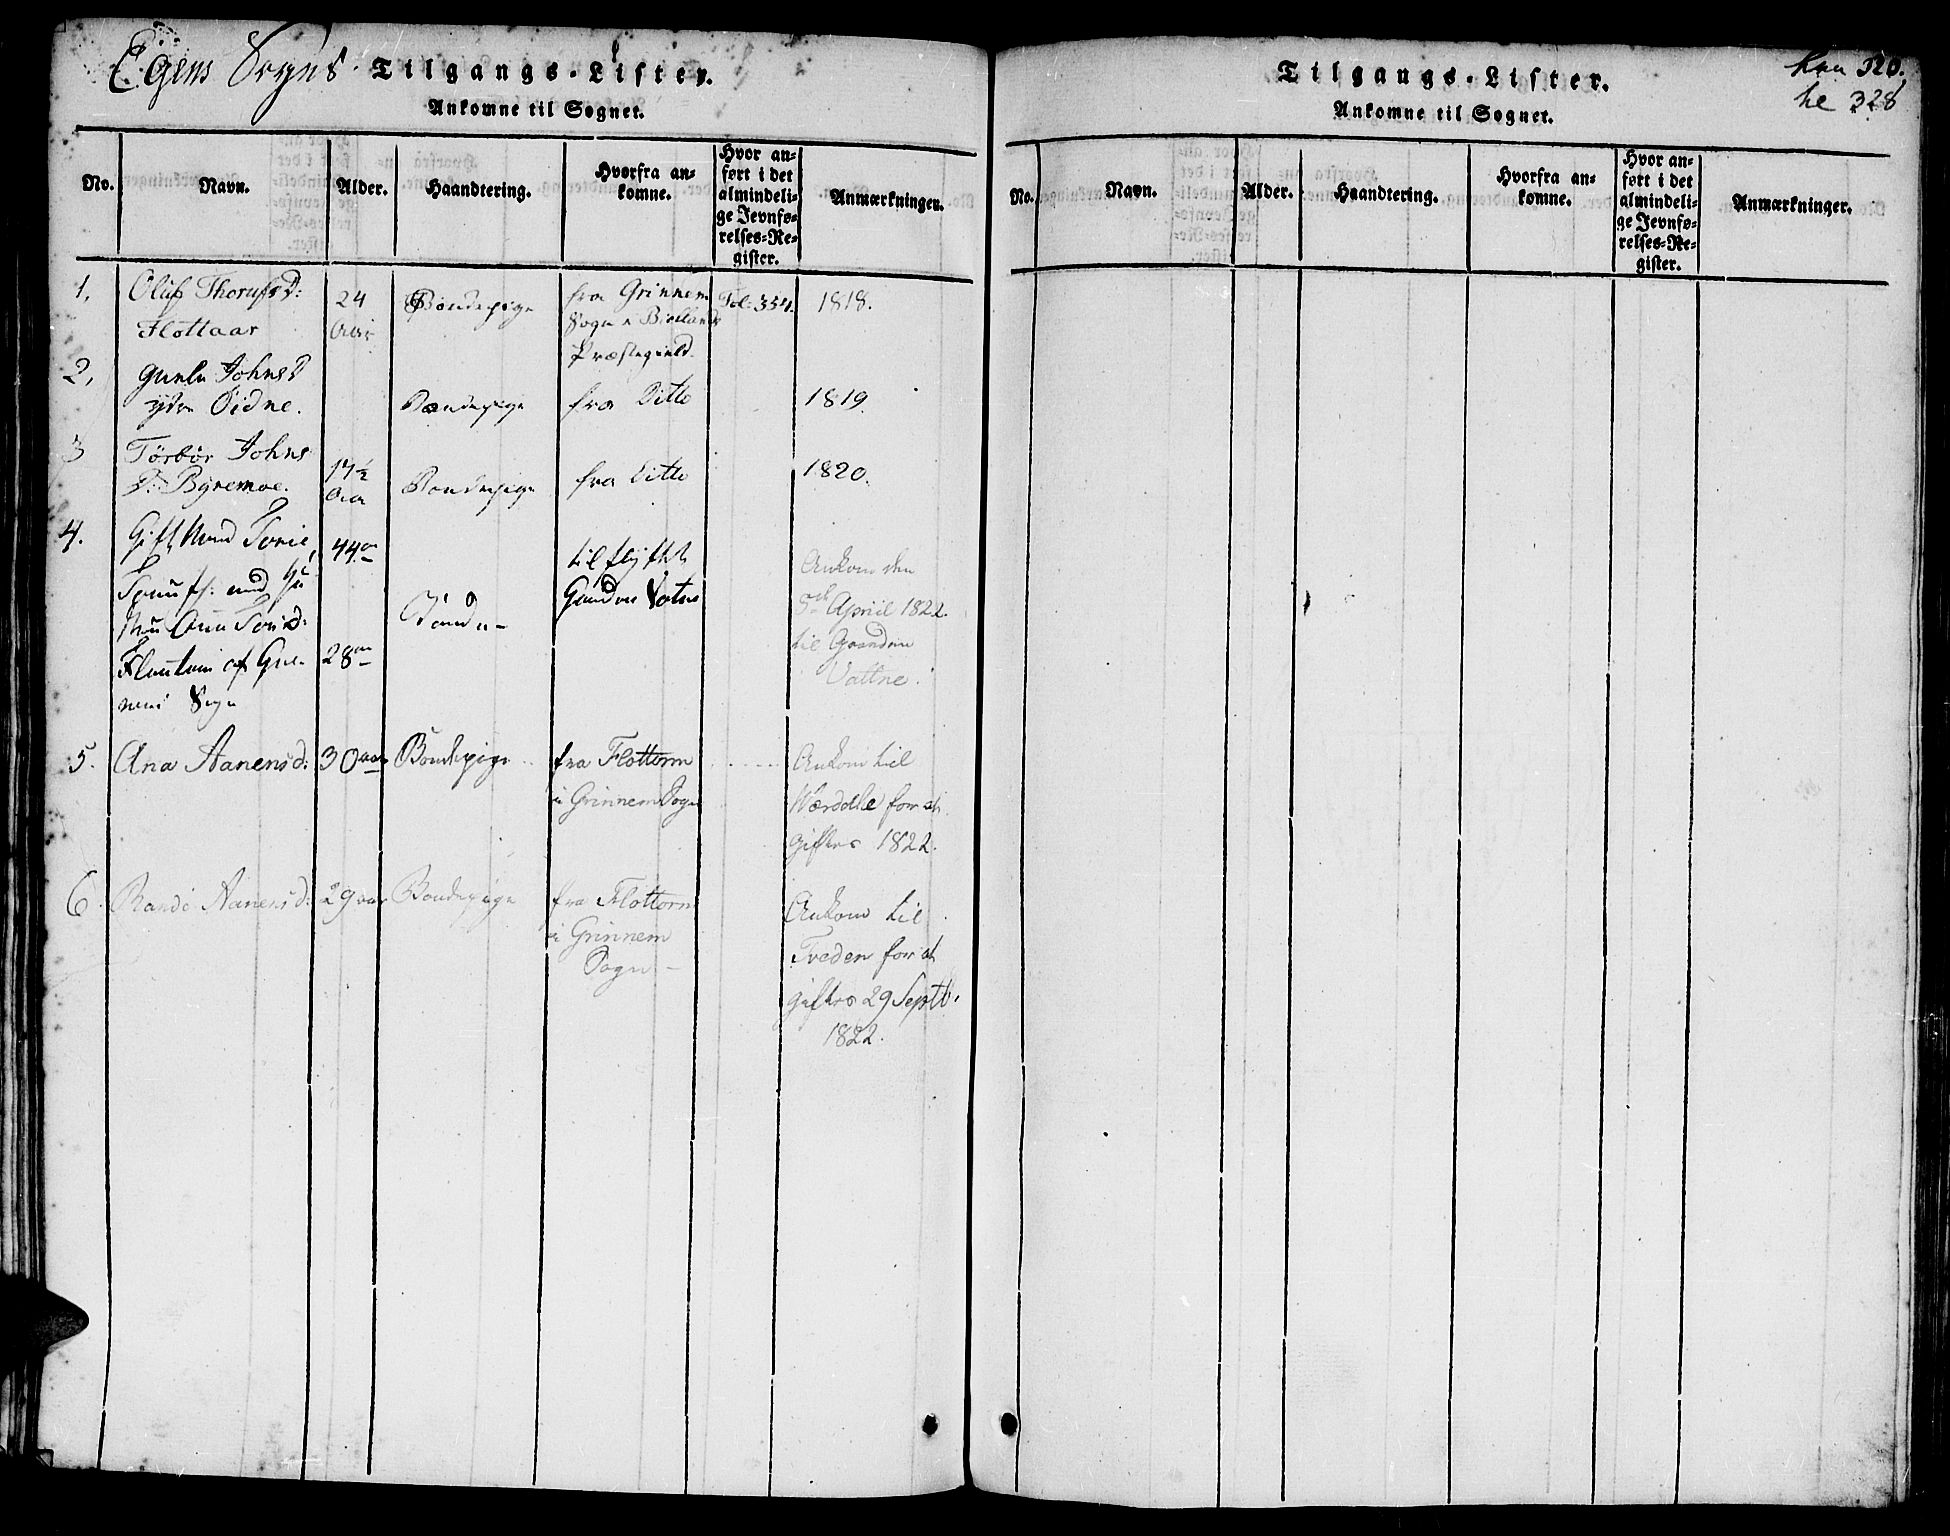 Egens Sogns Tilgangs-Lister.
Ankomne til Sognet.
No.
Navn.
Alder.
Haandtering.
Hvorfra an-
komne.
Hvor an-
ført i det
almindeli-
ge Jevnfø-
relses-Re-
gister.
Anmærkninger.
1,
Oluf Thorufs D:
Flottaar
24
Aar
Bondepige
fra Grinnem
Sogn i Biellands
Præstegield.
Fol: 354.
1818.
2,
Gunla Johns D
ytre Øidne.
Bondepige
fra Ditto
1819.
3
Törbör Johns
D: Byremoe.
17½
Aar
Bondepige
fra Ditto
1820.
4.
Gift Mand
med
af
Sogn
44
28
tilflyttet
Gaarden
Ankom den
5te April 1822.
til Gaarden
Vattne.
5.
Ana Aanensd:
30 aar
Bondepige
fra Flottorm
i Grinnem Sogn
Ankom til
for at
giftes 1822.
6.
Randi Aanensd:
29 aar
Bondepige
fra Flottorm
i Grinnem
Sogn
Ankom til
Tveden for at
giftes 29 Septb.
1822.
Tilgangs-Lister.
Ankomne til Sognet.
320.
328
No.
Navn.
Alder.
Haandtering.
Hvorfra an-
komne.
Hvor an-
ført i det
almindeli-
ge Jevnfø-
relses-Re-
gister.
Anmærkninger.